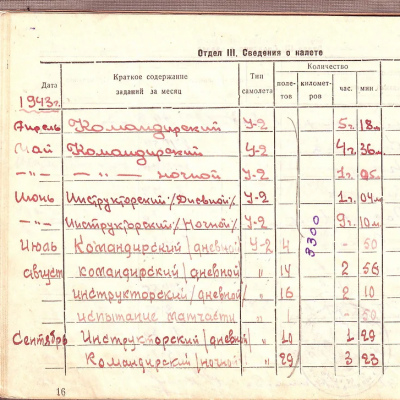 Отдел III. Сведения о налете
Дата
Краткое содержание заданий за месяц
Тип самолета
Количество
полетов
километров
час.
мин.
1943 г.
Апрель Командирский У-2 5 г. 18 м
Май Командирский У-2 4 г. 36 м.
—"— —"— ночной У-2 1 г. 05
Июнь Инструкторский/Дневной/ У-2 1 г. 04 м
—"— Инструкторский/Ночной/ У-2 9 г. 10 м
3300
Июль Командирский/дневной У-2 4 - 50
август командирский/дневной " 14 2 56
инструкторский/дневной/ " 16 2 10
испытание матчасти " 1 - 50
Сентябрь Инструкторский/дневной " 10 1 29
Командирский/ночной " 29 3 23
16